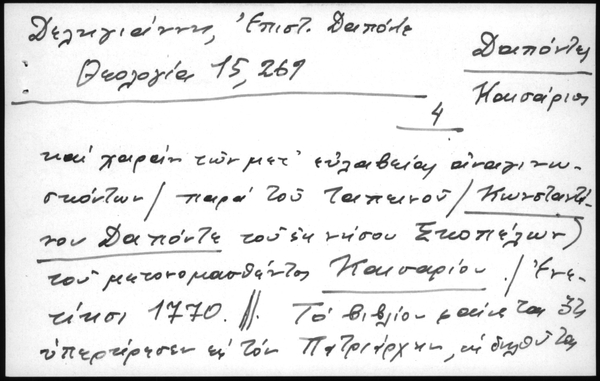 Δεληγιάννη, Ἐπιστ. Δαπόντε
Θεολογία 15,269
Δαπόντες
Καισάριος
4
καί χαράν τῶν μετ' εὐλαβείας ἀναγινω-
σκόντων / παρά τοῦ ταπεινοῦ / Κωνσταντί-
νου Δαπόντε τοῦ ἐκ νήσου Σκοπέλων /
τοῦ μετονομασθέντος Καισαρίου. / Ἐνε-
τίησι 1770. //. Τό βιβλίον φαίνεται ὅτι
εἰς τόν Πατριάρχην,